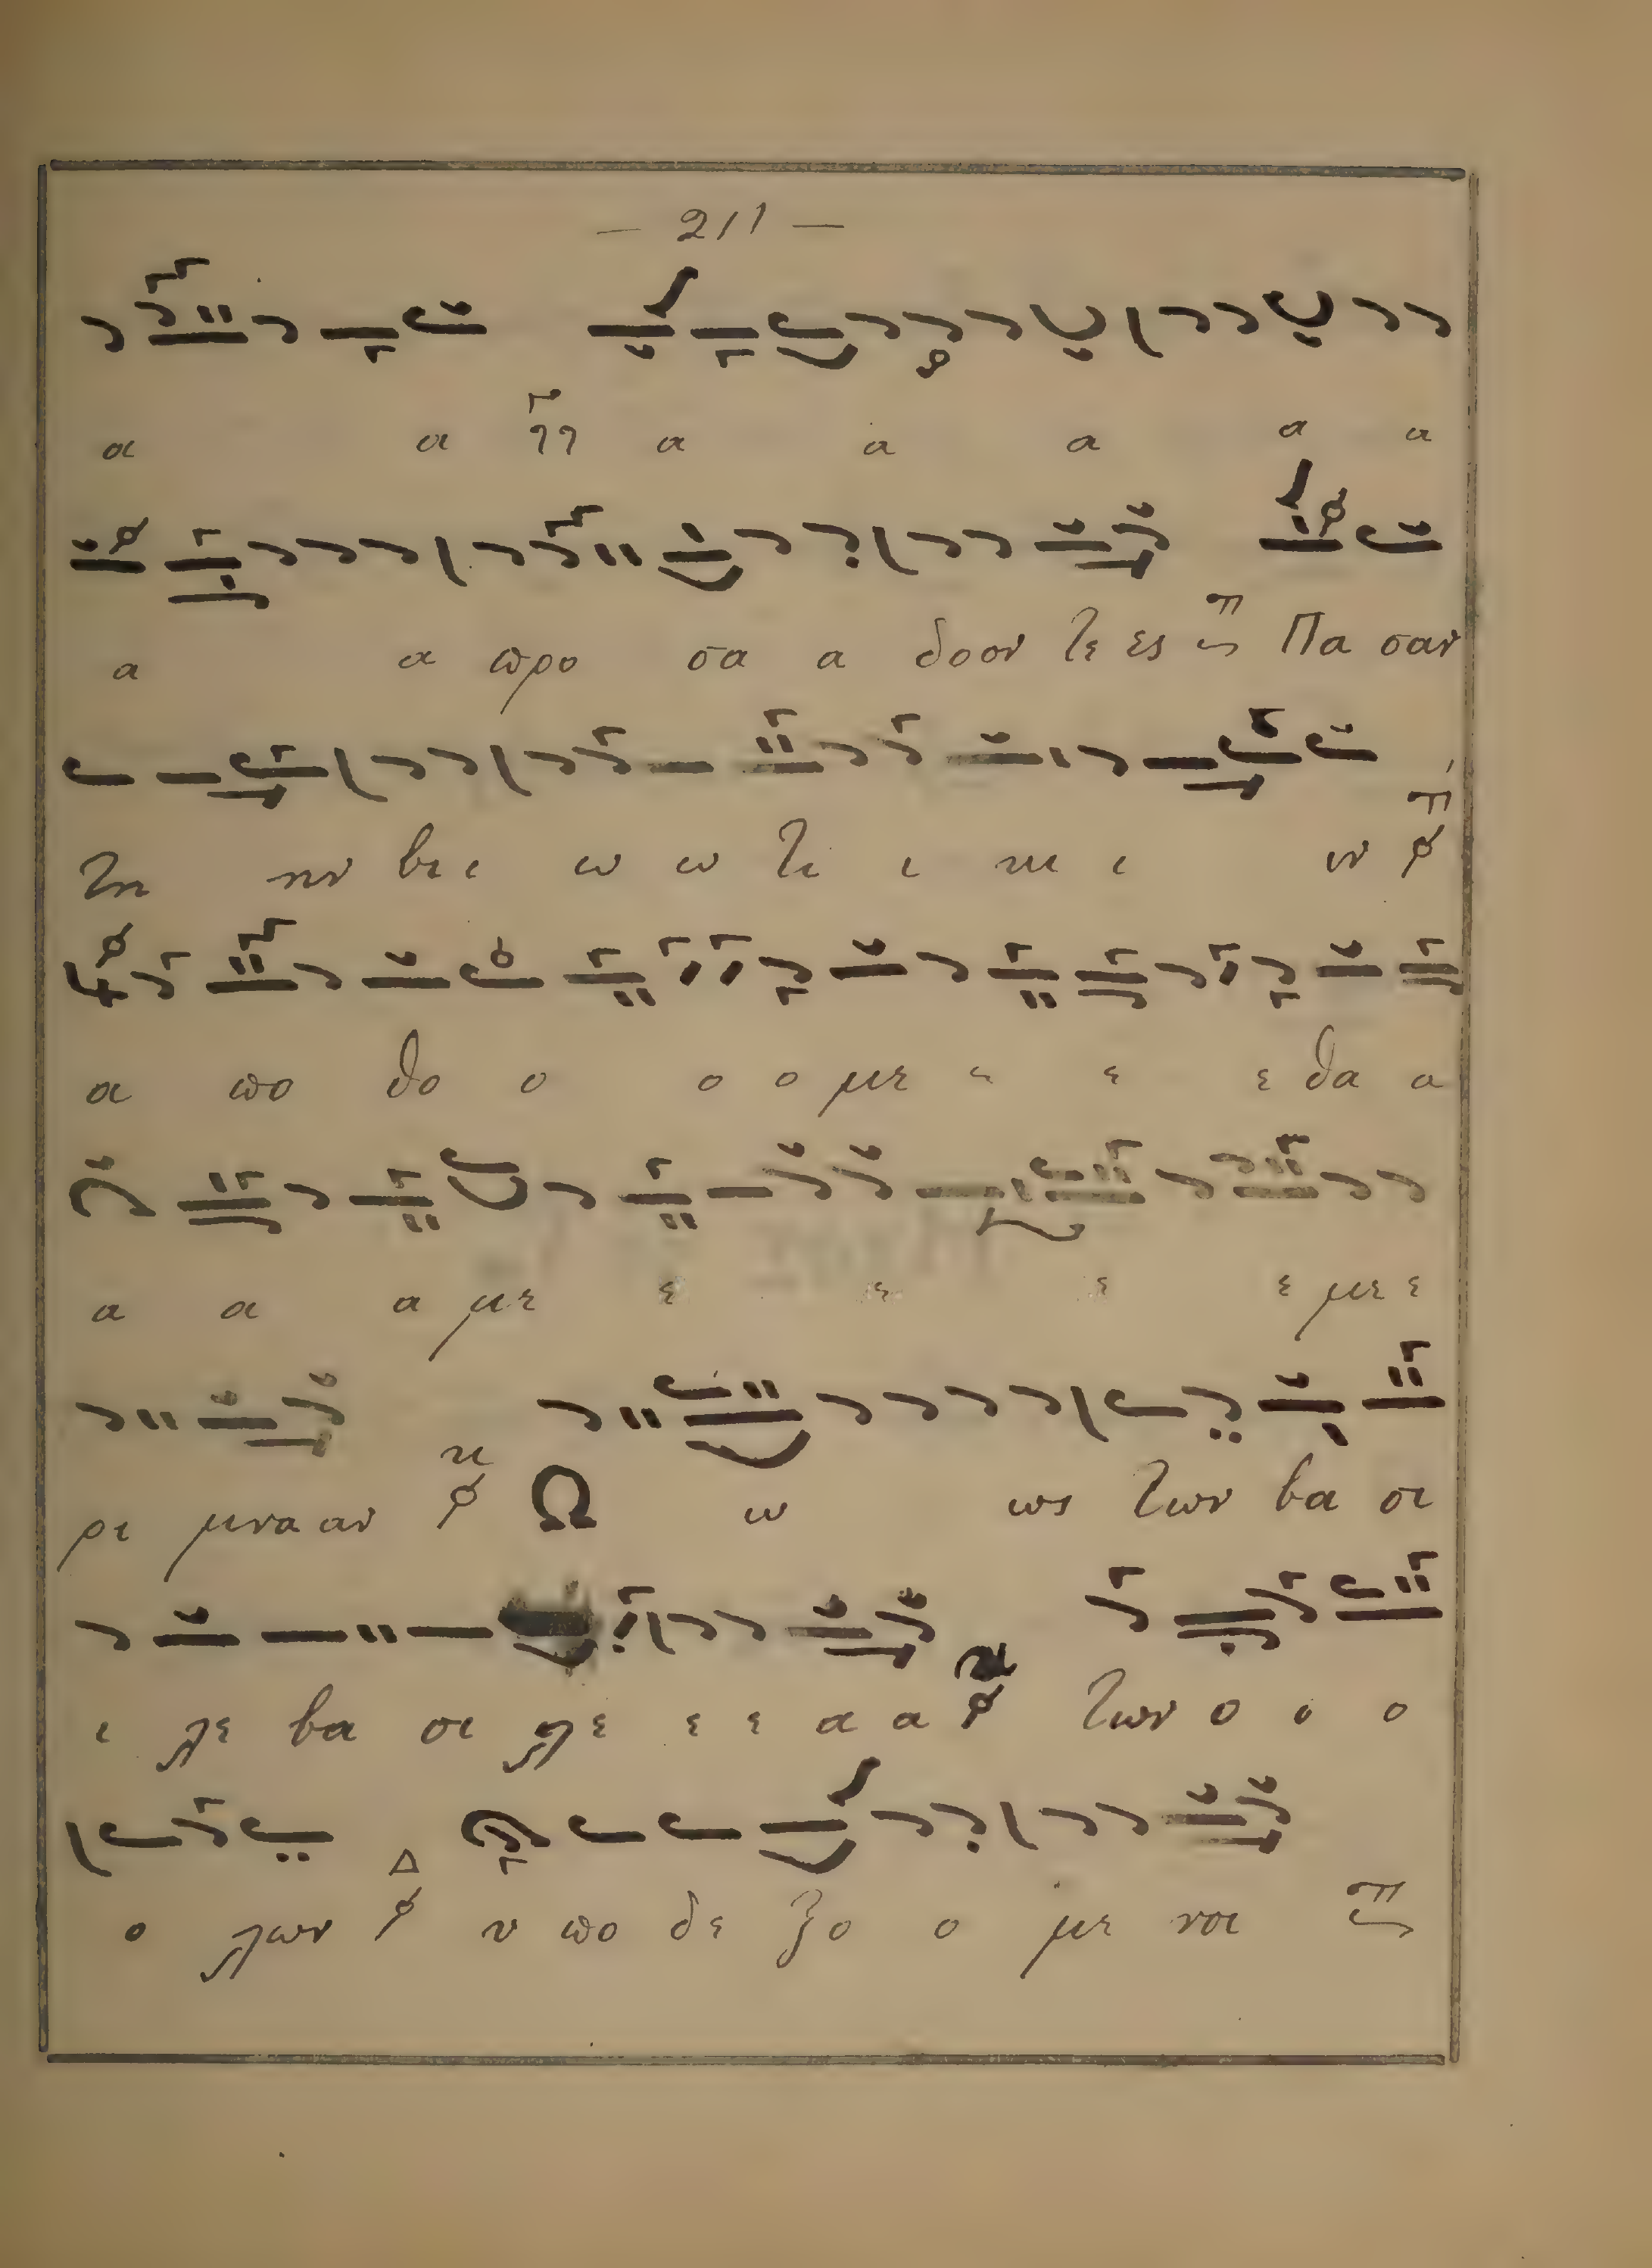 — 211 —
α α α α α α α
α α προ σα α δοον τε ες Πα σαν
τη ην βιι ω ω τι ι κι ι ιν
α πο θο ο ο ο με ε ε ε θα α
α α α με ε ε ε ε με ε
ρι μνα αν Ω ω ως των βα σι
ι λε βα σι λε ε ε α α των ο ο ο
ο λων υ πο δε ξο ο με νοι